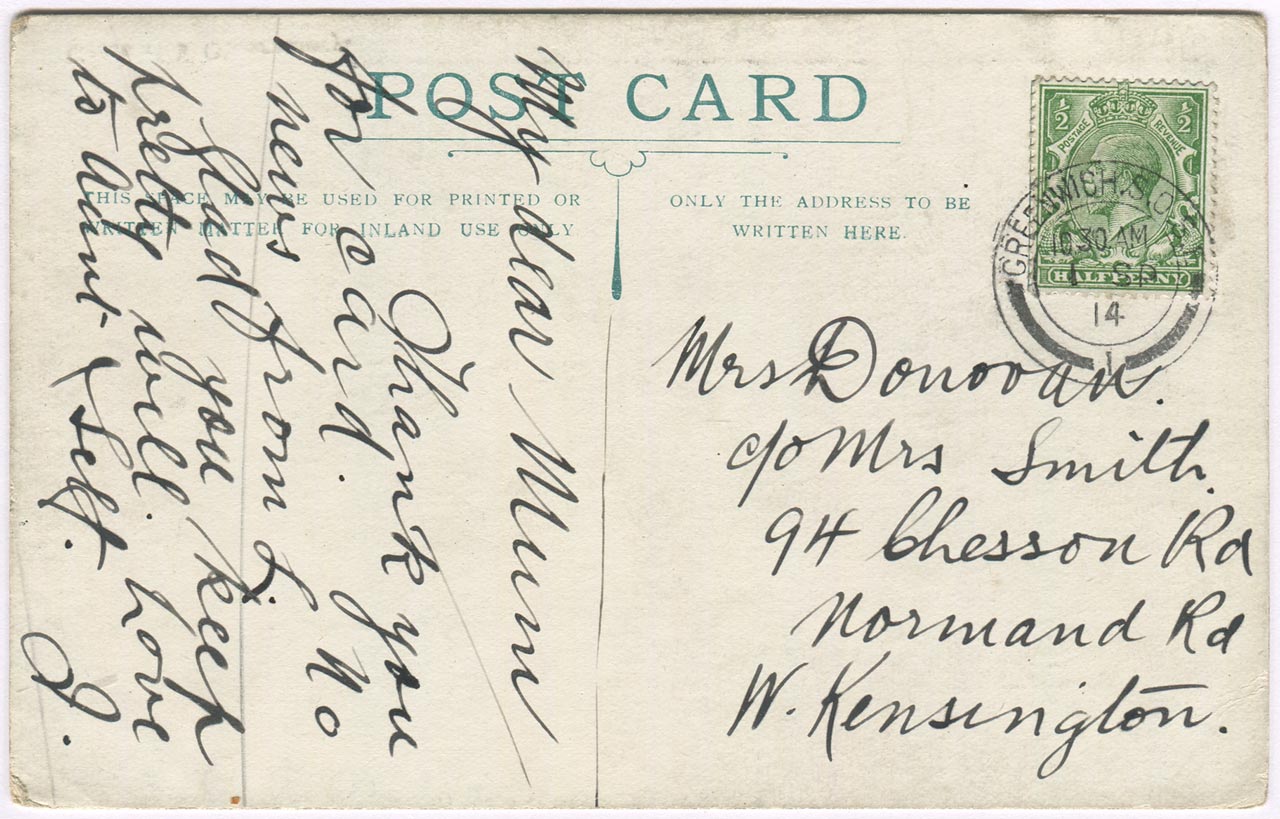 POST CARD
THIS SPACE MAY BE USED FOR PRINTED OR
WRITTEN MATTER FOR INLAND USE ONLY
ONLY THE ADDRESS TO BE
WRITTEN HERE.
1/2 1/2
POSTAGE REVENUE
HALFPENNY
GREENWICH. S.O.
10.30 AM
1 SP
14
1
My dear Mum
Thank you
for card. No
news from J.
Glad you keep
pretty well. Love
to Aunt & Self.
J.
Mrs Donovan.
c/o Mrs Smith.
94 Chesson Rd
Normand Rd
W. Kensington.